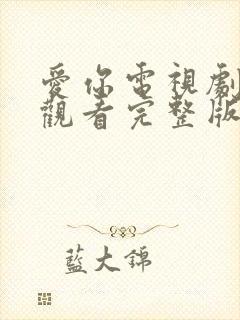 愛你電視劇
觀看完整版
藍大錦